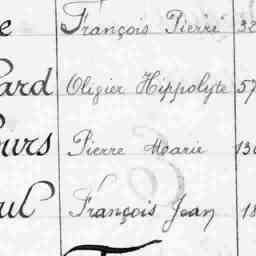 e François Pierre 32
ard Oligier Hippolyte 57
ours Pierre Marie 130
ul François Jean 18